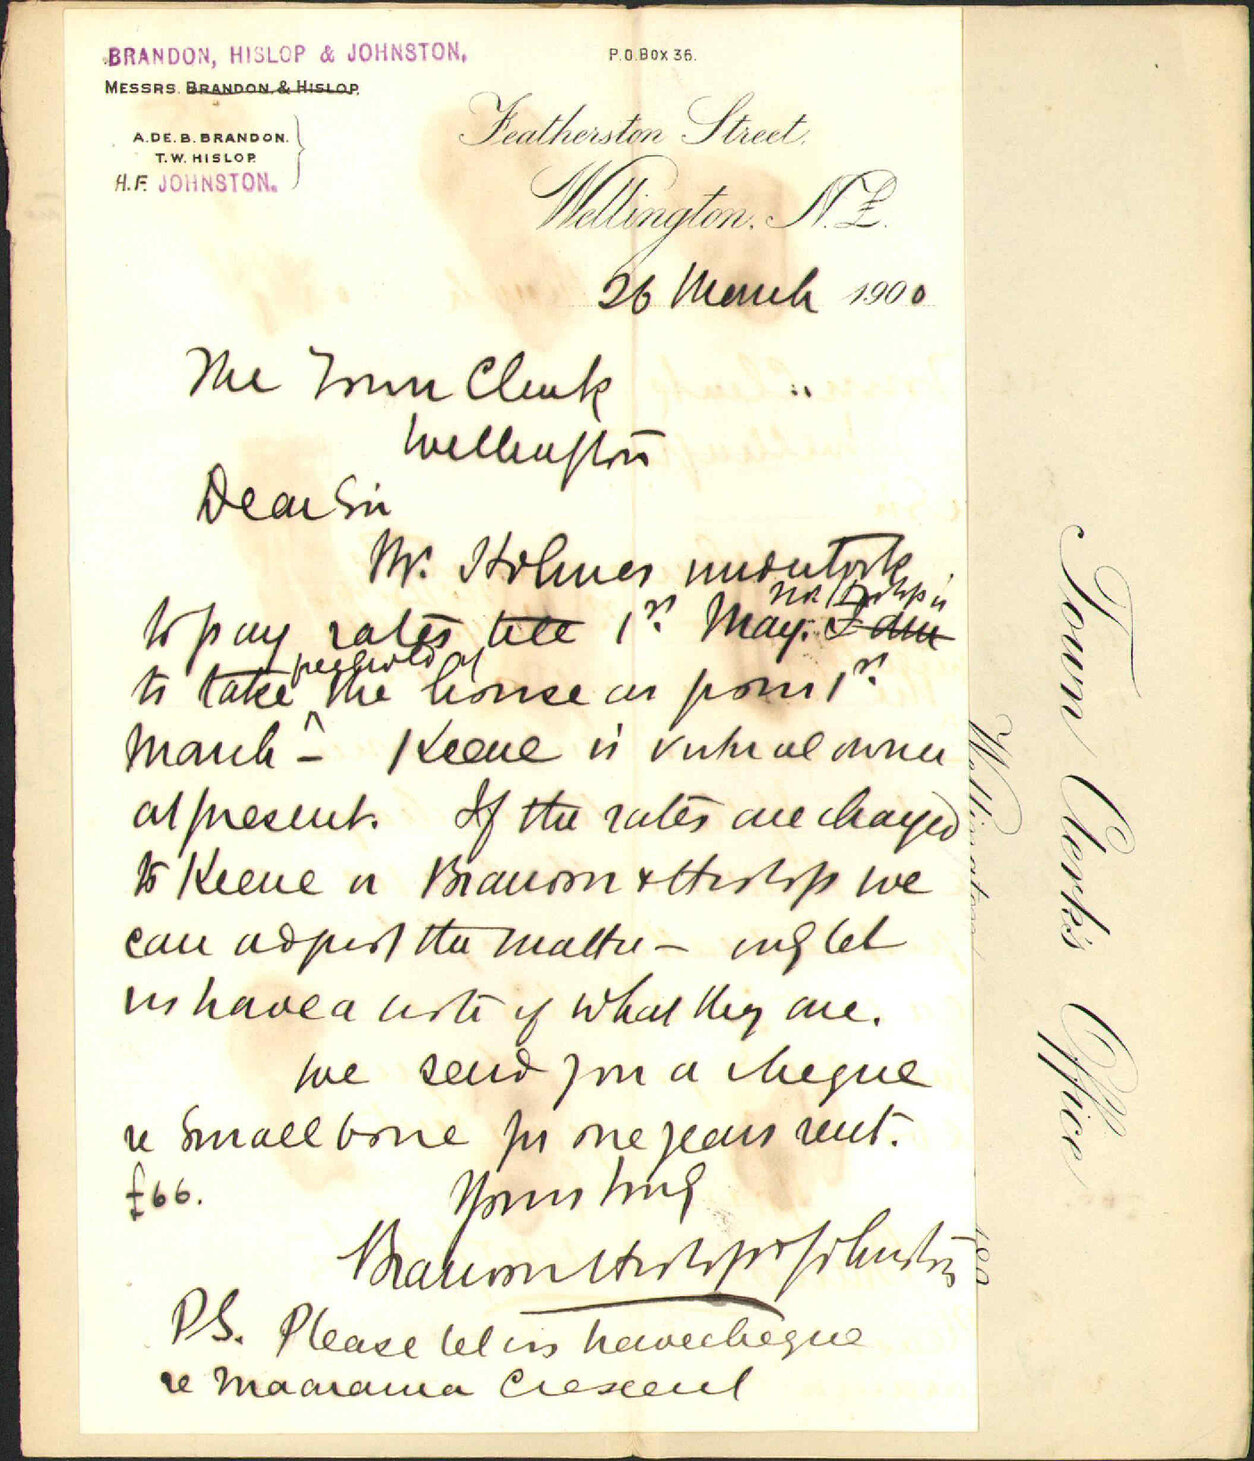 BRANDON, HISLOP & JOHNSTON,
P.O.BOX 36.
MESSRS. BRANDON & HISLOP.
A. DE. B. BRANDON.
T. W. HISLOP.
H.F. JOHNSTON.
Featherston Street,
Wellington. N.Z.
26 March 1900
The Town Clerk
Wellington
Dear Sir
Mr. Holmes undertook
Mr Hislop is
to pay rates till 1st May. I am
freehold of
to take the house as from 1st
March – Keene is virtual owner
at present. If the rates are charged
to Keene or Brandon & Hislop we
can adjust the matter – only let
us have a note of what they are.
We send you a cheque
re Small bone for one years rent.
£66.
Yours truly
Brandon Hislop & Johnston
P.S. Please let us have cheque
re Maarama Crescent
Town Clerk's Office
Wellington